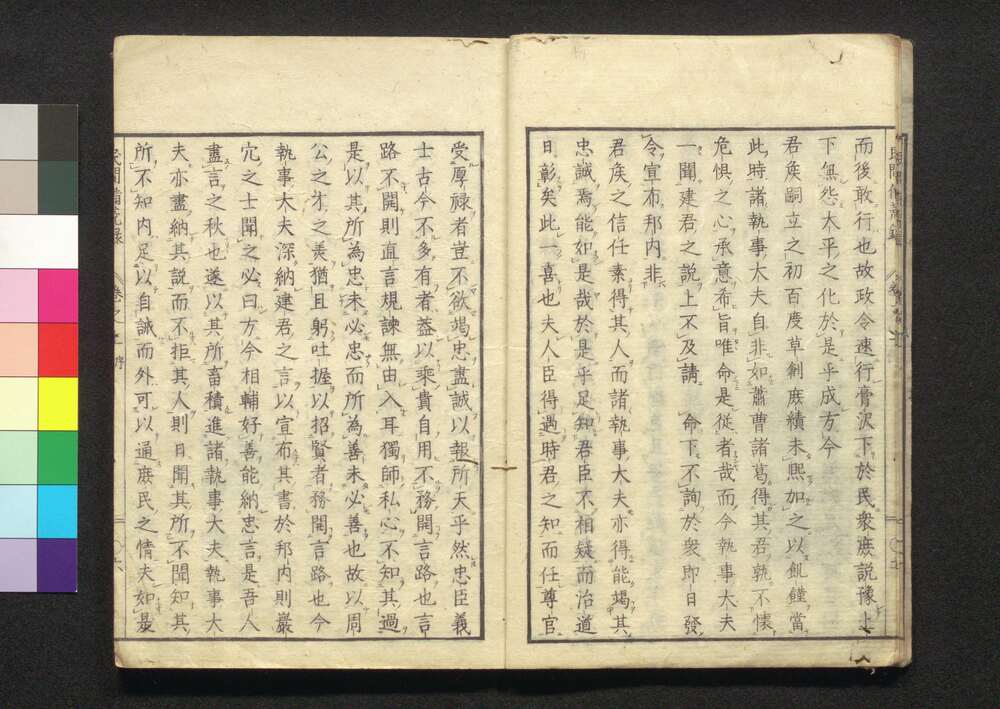 而後敢行也故政令速行膏沢下於民衆庶説豫上
下無怨太平之化於是乎成方今
君矦嗣立之初百度草創庶績未熙加之以飢饉當
此時諸執事大夫自非如蕭曹諸葛得其君孰不懐
危惧之心承意希旨唯命是従者哉而今執事大夫
一聞建君之説上不及請　命下不詢於衆即日發
令宣布邦内非
君矦之信任素得其人而諸執事大夫亦得能竭其
忠誠焉能如是哉於是乎足知君臣不相疑而治道
日彰矣此一喜也夫人臣得遇時君之知而任尊官
受厚禄者豈不欲竭忠盡誠以報所天乎然忠臣義
士古今不多有者葢以乘貴自用不務開言路也言
路不開則直言規諫無由入耳獨師私心不知其過
是以其所為忠未必忠而所為善未必善也故以周
公之才之美猶且躬吐握以招賢者務開言路也今
執事大夫深納建君之言以宣布其書於邦内則巖
穴之士聞之必曰方今相輔好善能納忠言是吾人
盡言之秋也遂以其所畜積進諸執事大夫執事大
夫亦盡納其説而不拒其人則日聞其所不聞知其
所不知内足以自誡而外可以通庶民之情夫如是
民間備荒録　巻之上　序　〇六